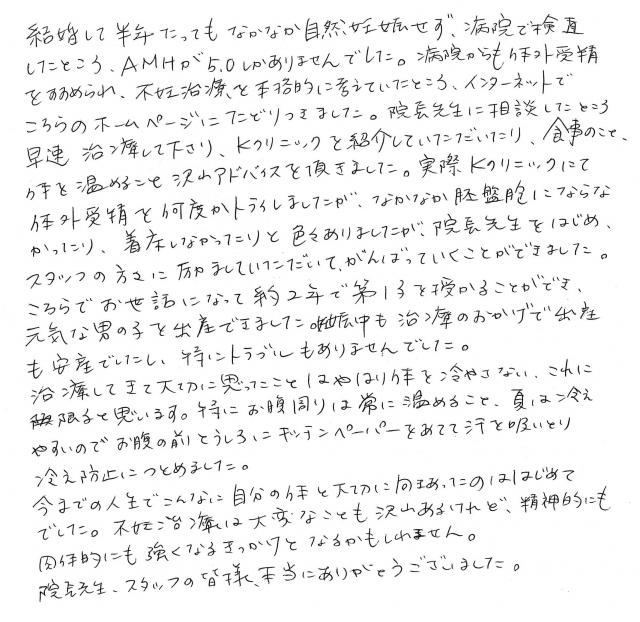 結婚して半年たってもなかなか自然妊娠せず、病院で検査
したところ、AMHが5.0しかありませんでした。病院からも体外受精
をすすめられ、不妊治療を本格的に考えていたところ、インターネットで
こちらのホームページにたどりつきました。院長先生に相談したところ
早速治療して下さり、Kクリニックを紹介していただいたり、食事のこと、
体を温めること沢山アドバイスを頂きました。実際Kクリニックにて
体外受精を何度かトライしましたが、なかなか胚盤胞にならな
かったり、着床しなかったりと色々ありましたが、院長先生をはじめ、
スタッフの方々に励ましていただいて、がんばっていくことができました。
こちらでお世話になって約2年で第1子を授かることができ、
元気な男の子を出産できました。妊娠中も治療のおかげで出産
も安産でしたし、特にトラブルもありませんでした。
治療してきて大切に思ったことはやはり体を冷やさない、これに
限ると思います。特にお腹周りは常に温めること、夏は冷え
やすいのでお腹の前とうしろにキッチンペーパーをあてて汗を吸いとり
冷え防止につとめました。
今までの人生でこんなに自分の体と大切に向きあったのははじめて
でした。不妊治療は大変なことも沢山あるけれど、精神的にも
肉体的にも強くなるきっかけとなるかもしれません。
院長先生、スタッフの皆様、本当にありがとうございました。